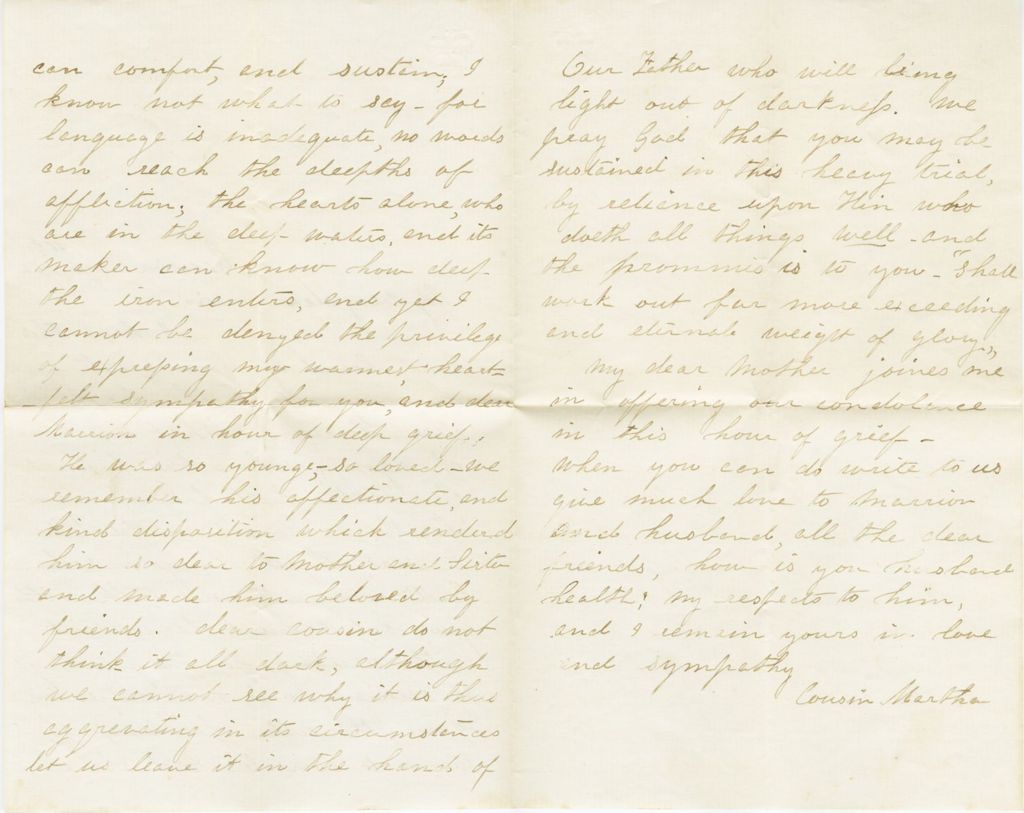 can comfort, and sustain, I
know not what to say - for
language is inadequate, no words
can reach the deepths of
affliction; the hearts alone, who
are in the deep waters, and its
maker can know how deep
the iron enters, and yet I
cannot be denyed the privilege
of expressing my warmest heart
felt sympathy for you, and dear
Marrion in hour of deep grief.
He was so younge, - so loved - we
remember his affectionate, and
kind disposition which renderd
him so dear to Mother and Sister
and made him beloved by
friends. dear cousin do not
think it all dark, although
we cannot see why it is thus
aggrevating in its circumstances
let us leave it in the hand of
Our Father who will bring
light out of darkness. We
pray God that you may be
sustained in this heavy trial,
by reliance upon Him who
doeth all things well - and
the prommis is to you - "Shall
work out far more exceeding
and eternale weight of glory,"
My dear Mother joines me
in offering our condolance
in this hour of grief -
When you can do write to us
give much love to Marrion
and husband, all the dear
friends, how is you husband
health? my respects to him,
and I remain yours in love
and sympathy
Cousin Martha